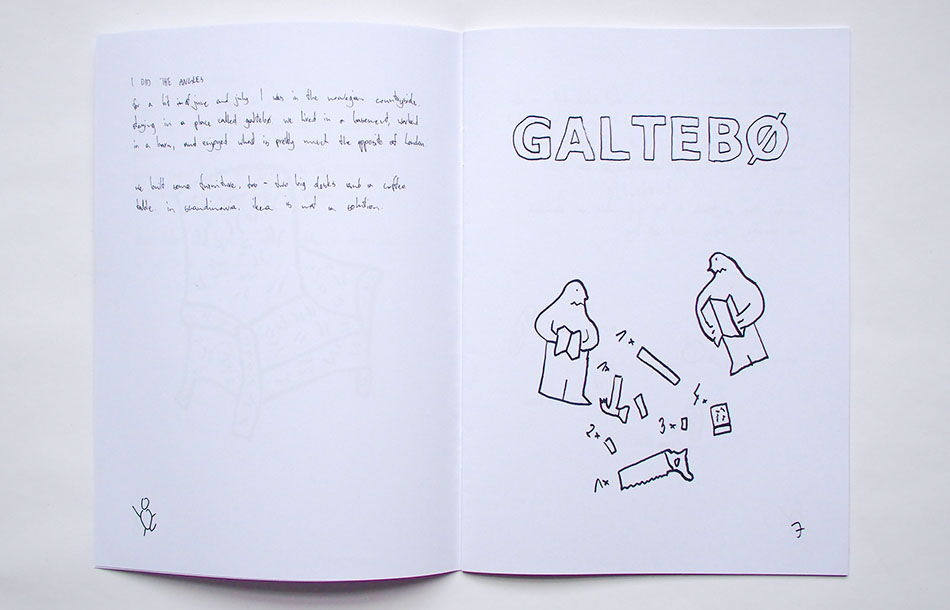 I DID THE
for a bit of june and july I was in the norwegian countryside.
staying in a place called galtebø. we lived in a basement, worked
in a barn, and enjoyed what is pretty much the opposite of london
we built some furniture, too - two big desks and a coffee
table. in scandinavia. ikea is not a solution.
GALTEBØ
1x
1x
4x
3x
2x
1x
7